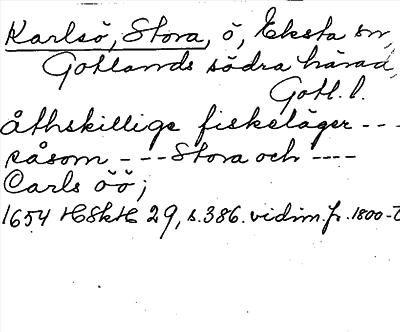 Karlsö, Stora, ö, Eksta sn,
Gotlands södra härad,
Gotl. l.
åthskillige fiskeläger ---
såsom --- Stora och ----
Carls öö;
1654 HSkH 29, s. 386. vidim. fr. 1800-t